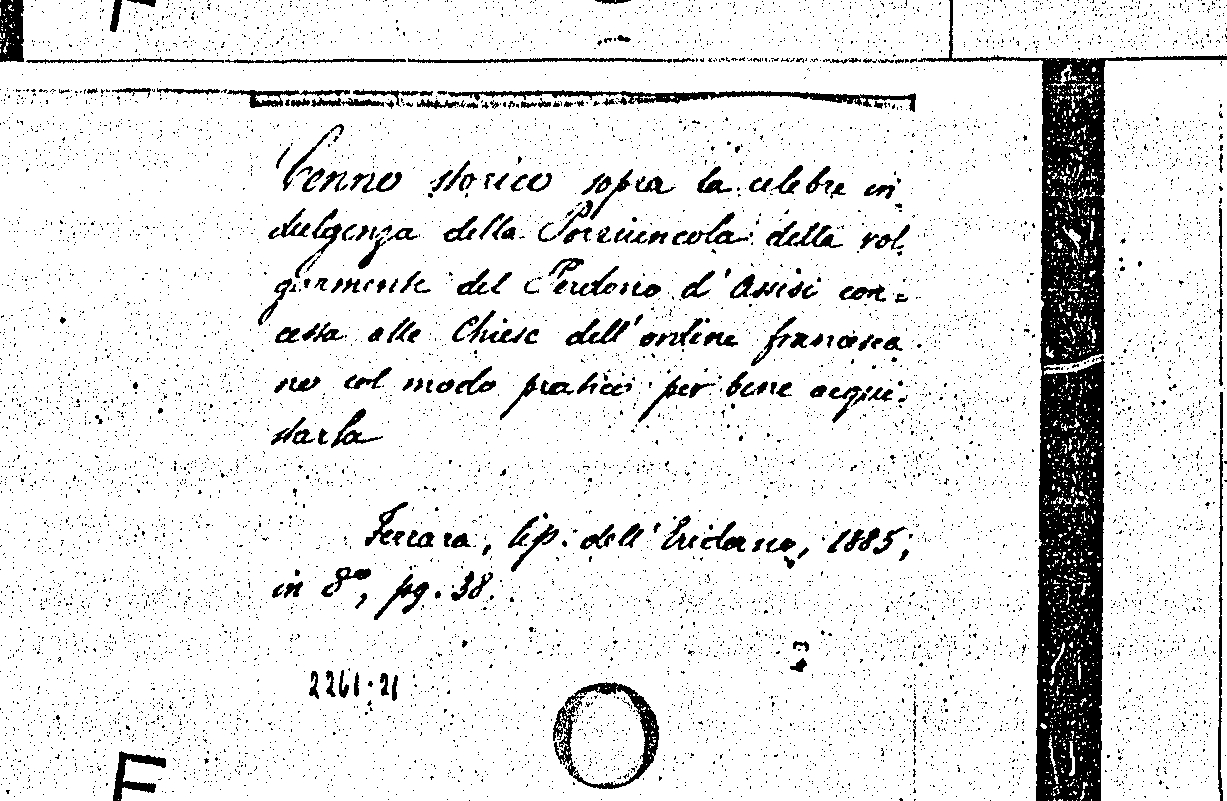 Cenno storico sopra la celebre in-
dulgenza della Porziuncola della vol-
garmente del Perdono d'Assisi con=
cessa alle Chiese dell'ordine francesca-
no col modo pratico per bene acqui-
starla
Ferrara, tip. dell'Eridano, 1885,
in 8°, pg. 38.
2261.21